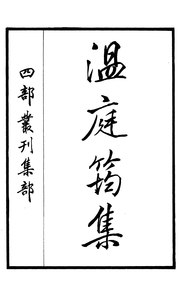 温庭筠集
四部叢刊集部